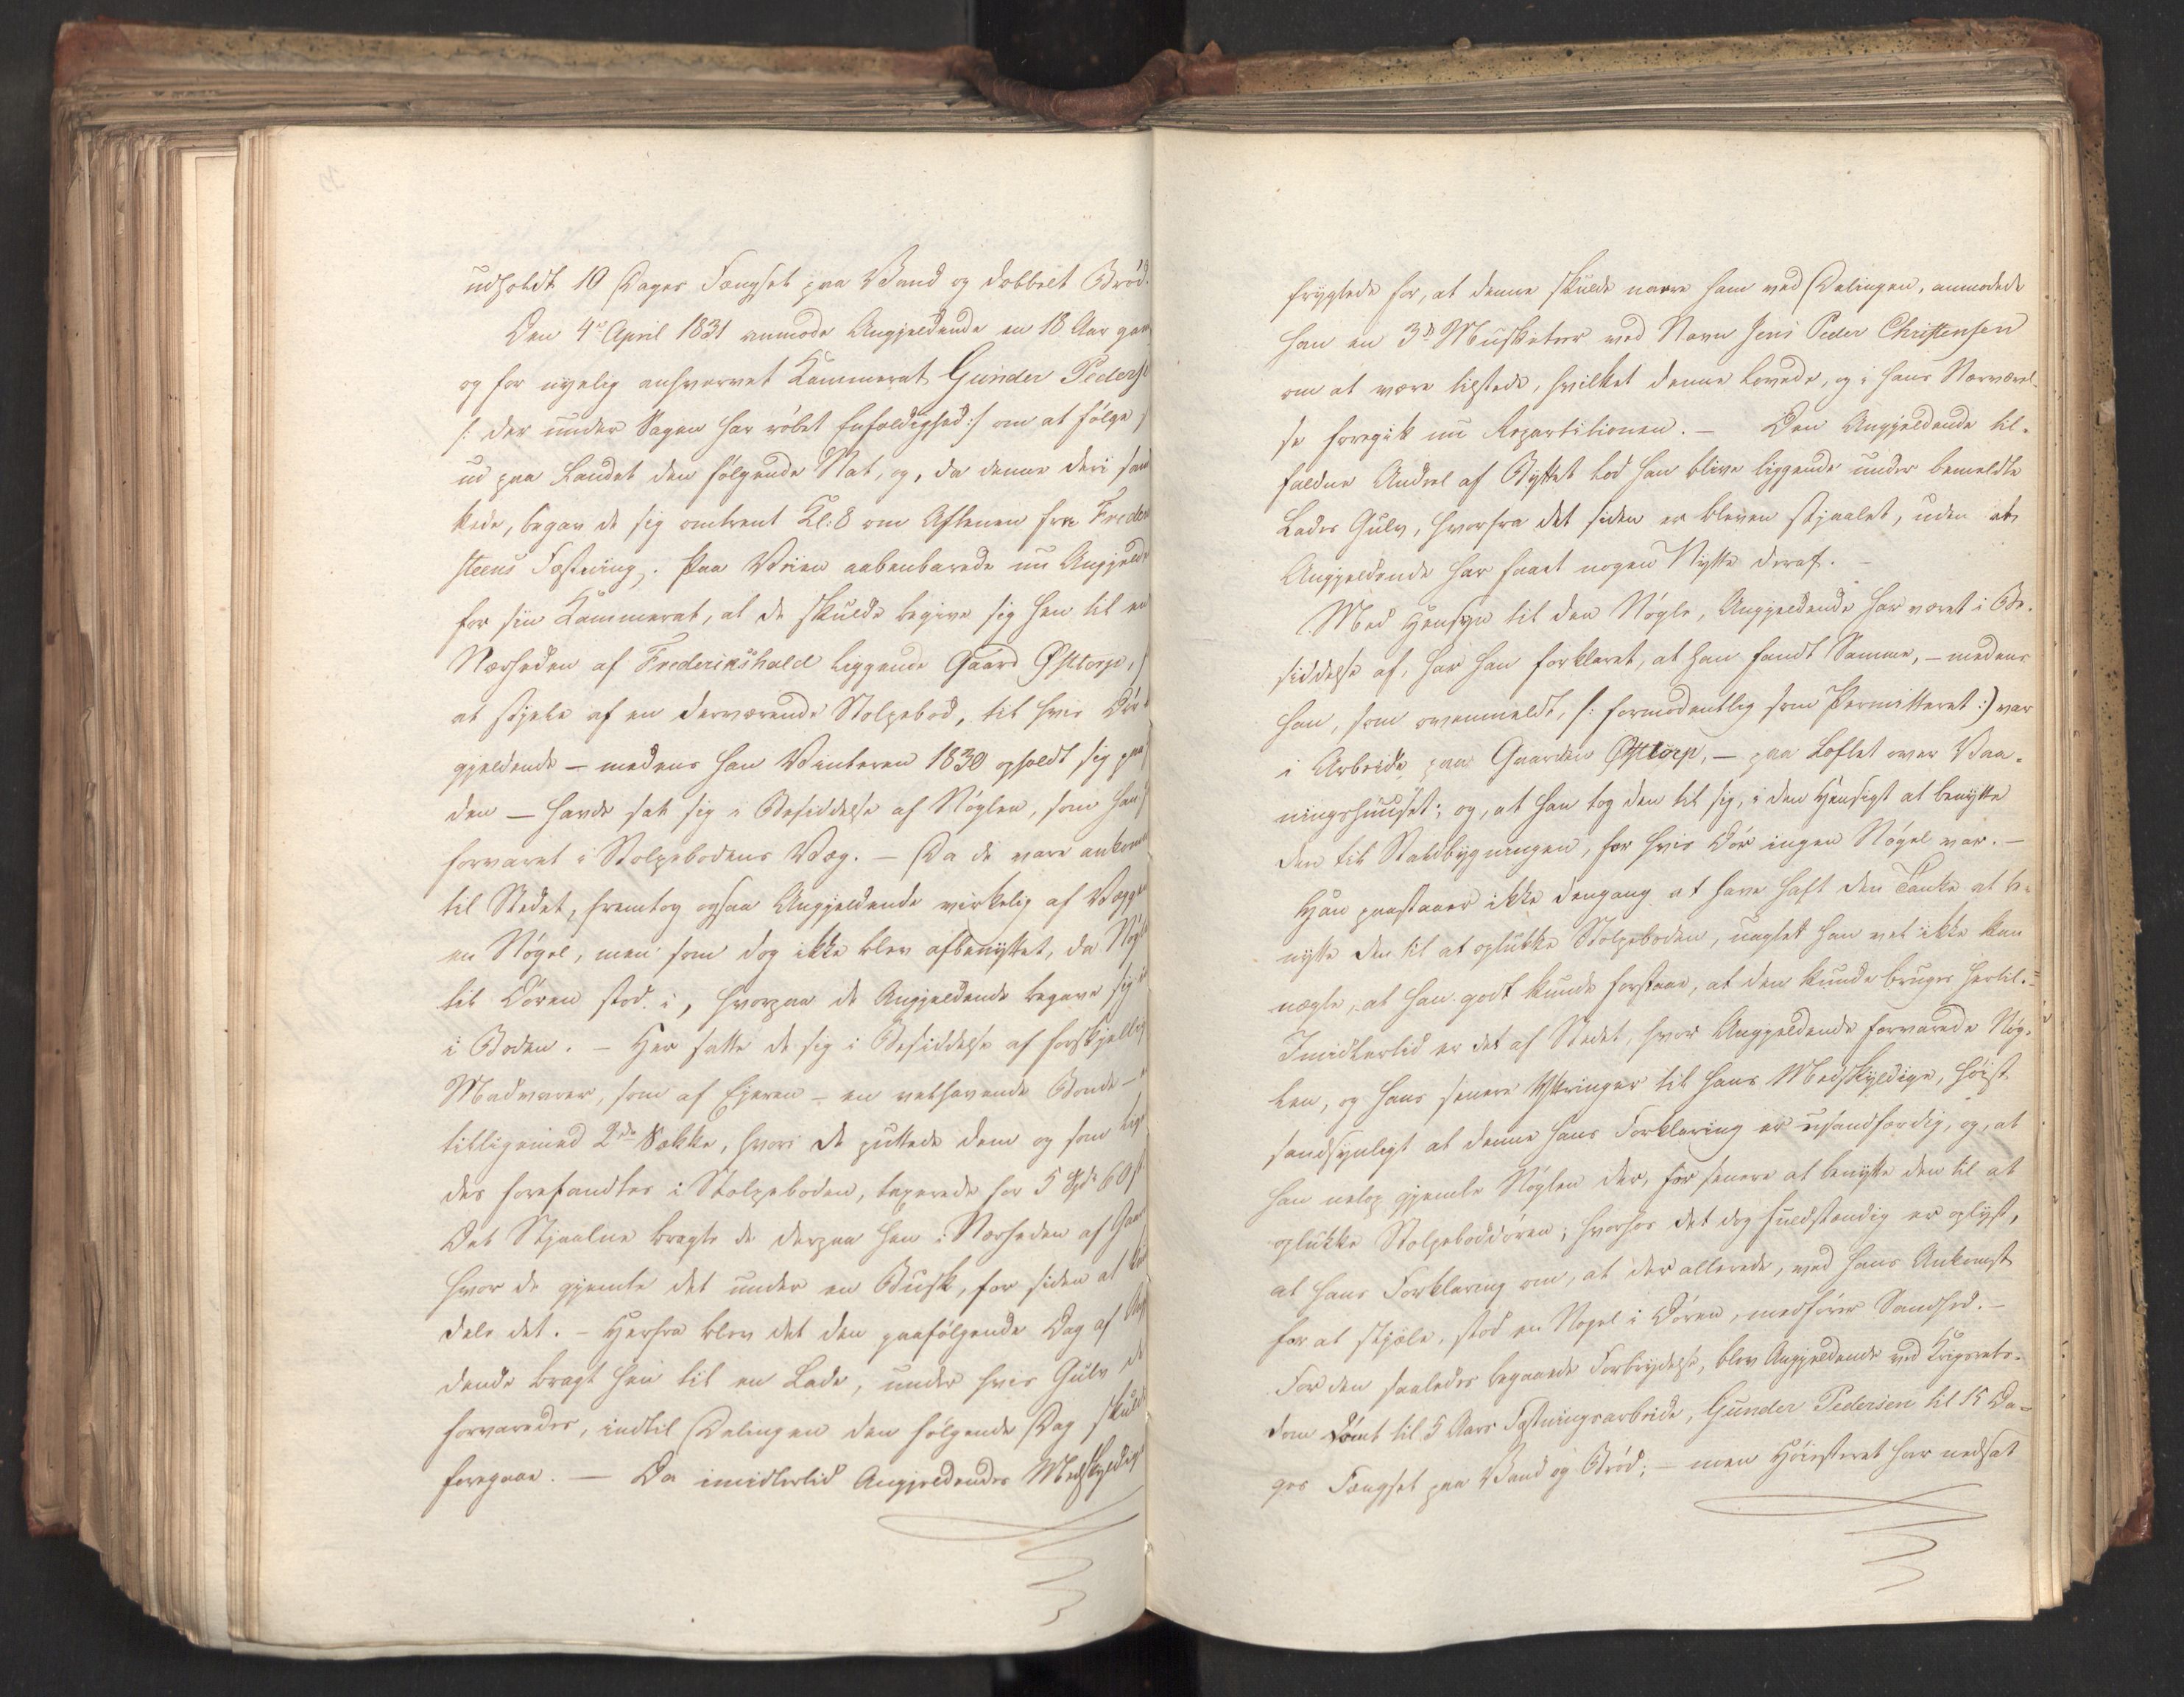 udholdt 10 Dages Fængsel paa Vand og dobbelt Brød.
Den 4de April 1831 anmode Angjeldende en 18 Aar gam
og for nyelig anhvervet Kammerat Gunder Peders
/: der under Sagen har røbet Enfoldighed :/ om at følge
ud paa Landet den følgende Nat, og, da denne deri sam
kede, begav de sig omtrent Kl: 8 om Aftenen fra Freder
steens Fæstning. Paa Veien aabenbarede nu Angjelde
for sin Kammerat, at de skulde begive sig hen til en
Nærheden af Frederikshald liggende Gaard Østtorp,
at stjele af en derværende Stolpebod, til hvis Dør
gjeldende – medens han Vinteren 1830 opholdt sig paa
den – havde sat sig i Besiddelse af Nøglen, som han
forvaret i Stolpebodens Væg. – Da de vare ankom
til Stedet, fremtog ogsaa Angjeldende virkelig af Vægge
en Nøgel, men som dog ikke blev afbenyttet, da Nøgle
til Døren stod i, hvorpaa de Angjeldende begave sig i
i Boden. – Her satte de sig i Besiddelse af forskjellig
Madvarer, som af Ejeren – en velhavende Bonde –
tilligemed 2de Sække, hvori de puttede dem og som lige
des forefandtes i Stolpeboden, taxerede for 5 Spd 60
Det Stjaalne bragte de derpaa hen i Nærheden af Gaar
hvor de gjemte det under en Busk, for siden at
dele det. – Herfra blev det den paafølgende Dag af Ang
dende bragt hen til en Lade, under hvis Gulv de
forvaredes, indtil Delingen den følgende Dag skulde
foregaae. – Da imidlertid Angjeldendes Medskyldige
frygtede for, at denne skulde narre ham ved Delingen, anmodede
han en 3die Musketeer ved Navn Jens Peder Christensen
om at være tilstede, hvilket denne lovede, og i hans Nærværel-
se foregik nu Repartitionen. – Den Angjeldende til-
faldne Andeel af Byttet lod han blive liggende under bemeldte
Lades Gulv, hvorfra det siden er bleven stjaalet, uden at
Angjeldende har faaet nogen Nytte deraf. –
Med Hensyn til den Nøgle, Angjeldende har været i Be-
siddelse af, har han forklaret, at han fandt Samme, – medens
han, som ovenmeldt, /: formodentlig som Permitteret :/ var
i Arbeide paa Gaarden Østtorp, – paa Loftet over Vaa-
ningshuuset; og, at han tog den til sig, i den Hensigt at benytte
den til Staldbygningen, for hvis Dør ingen Nøgel var. –
Han paastaaer ikke dengang at have haft den Tanke at be-
nytte den til at oplukke Stolpeboden, uagtet han vel ikke kan
nægte, at han godt kunde forstaae, at den kunde bruges hertil. –
Imidlertid er det af Stedet, hvor Angjeldende forvarede Nøg-
len, og hans senere Yttringer til hans Medskyldige, høist
sandsynligt at denne hans Forklaring er usandfærdig, og, at
han netop gjemte Nøglen der, for senere at benytte den til at
oplukke Stolpeboddøren; hvorhos det dog fuldstændig er oplyst,
at hans Forklaring om, at der allerede, ved hans Ankomst
for at stjæle, stod en Nøgel i Døren, medfører Sandhed. –
For den saaledes begaaede Forbrydelse, blev Angjeldende ved Krigsrets-
dom dømt til 5 Aars Fæstningsarbeide, Gunder Pedersen til 15 Da-
ges Fængsel paa Vand og Brød; – men Høiesteret har nedsat